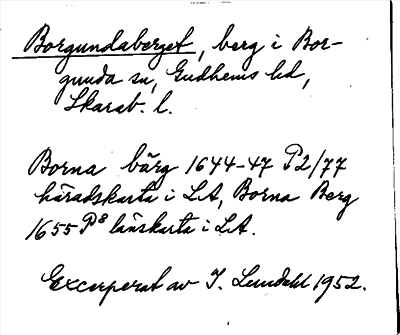 Borgundaberget, berg i Bor-
gunda sn, Gudhems hd,
Skarab. l.
Borna bärg 1644-47 P2/77
häradskarta i LA, Borna Berg
1655 P8 länskarta i LA.
Excerperat av I. Lundahl 1952.